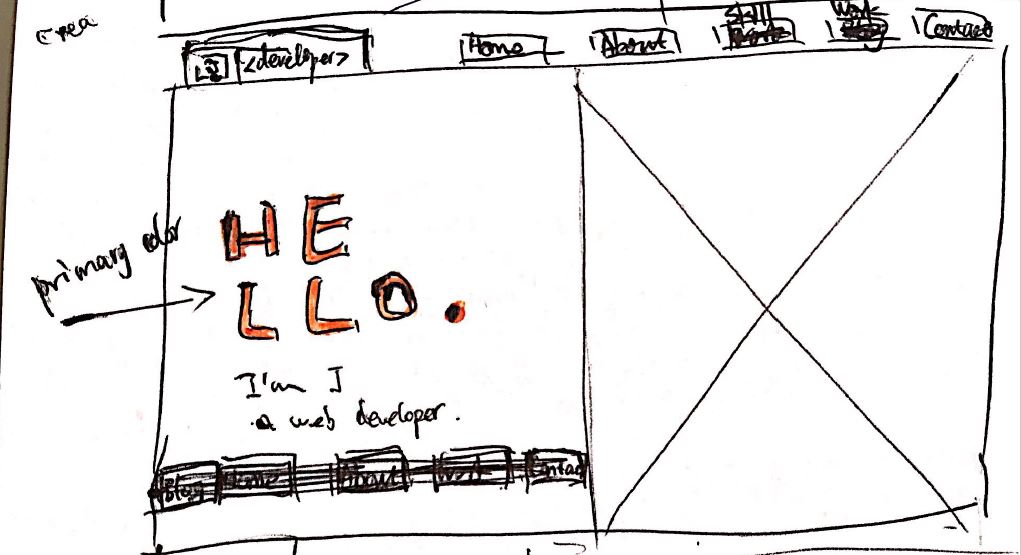 Crea
<developer> Home About Skill Work Contact
primary color
HE
LLO.
I'm J
a web developer.
Blog Home About Work Contact